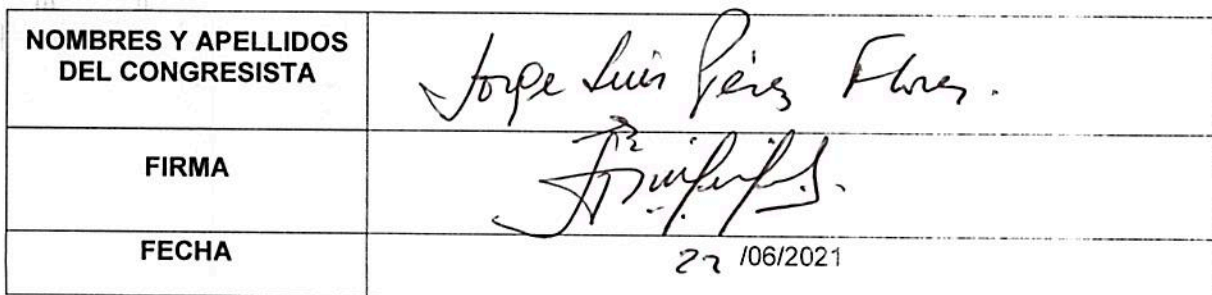 NOMBRES Y APELLIDOS
DEL CONGRESISTA
Jorge Luis Pérez Flores.
FIRMA
FECHA
/06/2021